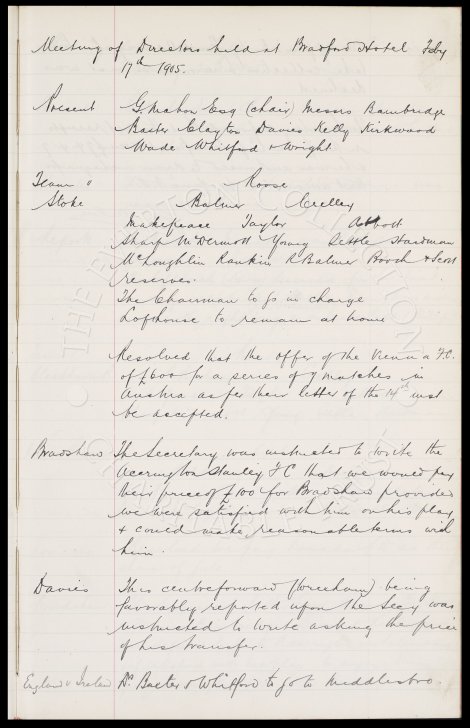 Meeting of Directors held at Bradford Hotel Feby
17th 1905.
Present G. Mahon Esq (chair) Messrs Bainbridge
Baxter Clayton Davies Kelly Kirkwood
Wade Whitford & Wright
Team v Roose
Stoke Balmer Crelley
Makepeace Taylor Abbott
Sharp McDermott Young Settle Hardman
McLoughlin Rankin R Balmer Booth & Scott
reserves.
The Chairman to go in charge
Lofthouse to remain at home
Resolved that the offer of the Vienna F.C.
of £600 for a series of 7 matches in
Austria as per their letter of the 14th inst
be accepted.
Bradshaw The Secretary was instructed to write the
Accrington Stanley F C that we would pay
their price of £100 for Bradshaw provided
we were satisfied with him on his play
& could make reasonable terms with
him.
Davies This centreforward (Wrexham) being
favorably reported upon the Secy was
instructed to write asking the price
of his transfer.
England v Ireland Dr Baxter & Whitford to go to Middlesbro.
THE EVERTON COLLECTION